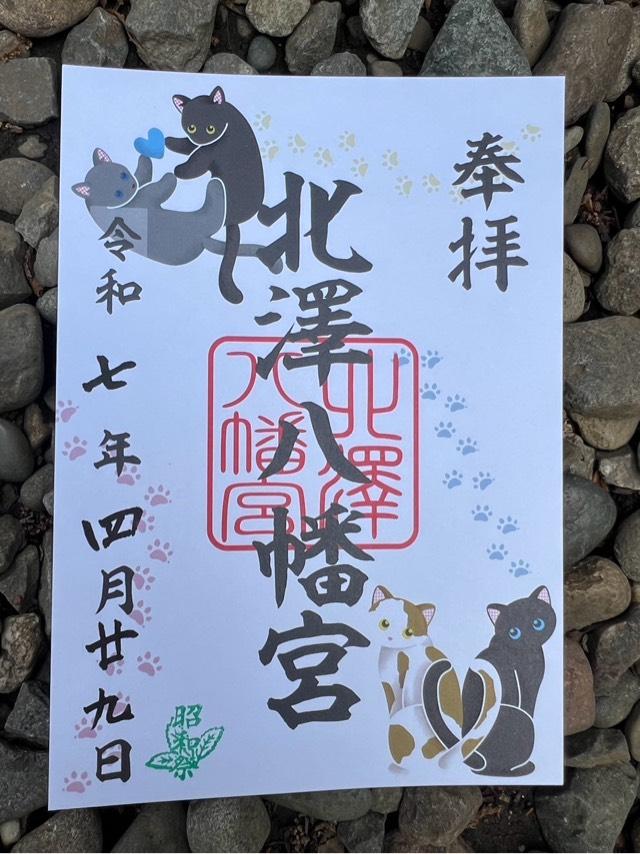 奉拝
北澤八幡宮
北澤
八幡宮
令和七年四月廿九日
昭和祭